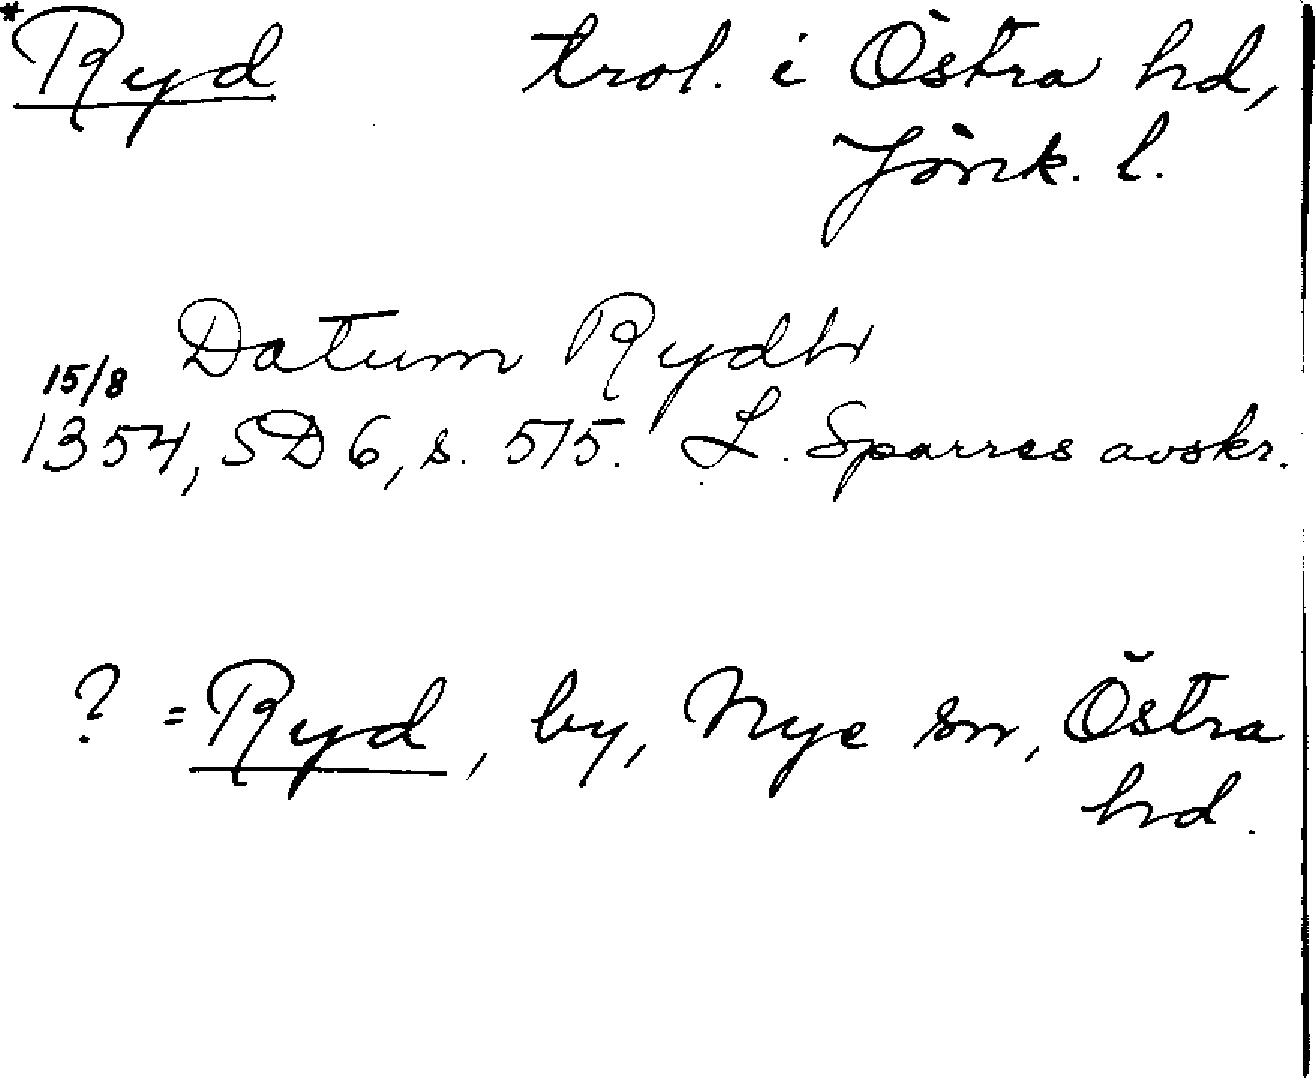 *Ryd trol. i Östra hd,
Jönk. l.
Datum Rydh
15/8
1354, SD 6, s. 515. L. Sparres avskr.
? = Ryd, by, Nye sn, Östra
hd.